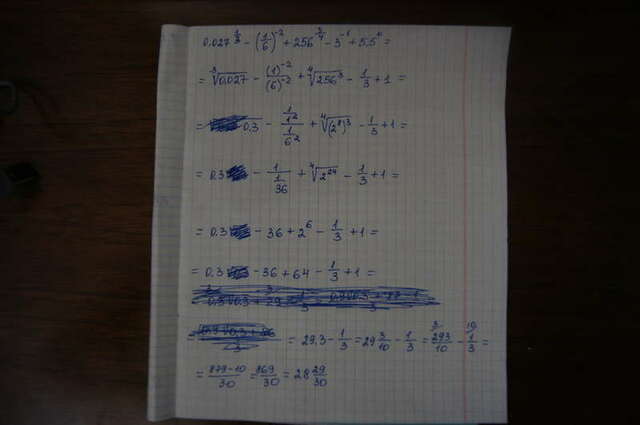 0.027^(1/3) - (1/6)^(-2) + 256^(3/4) - 3^(-1) + 5.5^0 =
= ∛0.027 - (1)^(-2)/(6)^(-2) + ∜256^3 - 1/3 + 1 =
= 0.3 - (1/1^2)/(1/6^2) + ∜(2^8)^3 - 1/3 + 1 =
= 0.3 - 1/(1/36) + ∜2^24 - 1/3 + 1 =
= 0.3 - 36 + 2^6 - 1/3 + 1 =
= 0.3 - 36 + 64 - 1/3 + 1 =
= 29.3 - 1/3 = 29 3/10 - 1/3 = 3/ 293/10 - 10/ 1/3 =
= 879-10/30 = 869/30 = 28 29/30